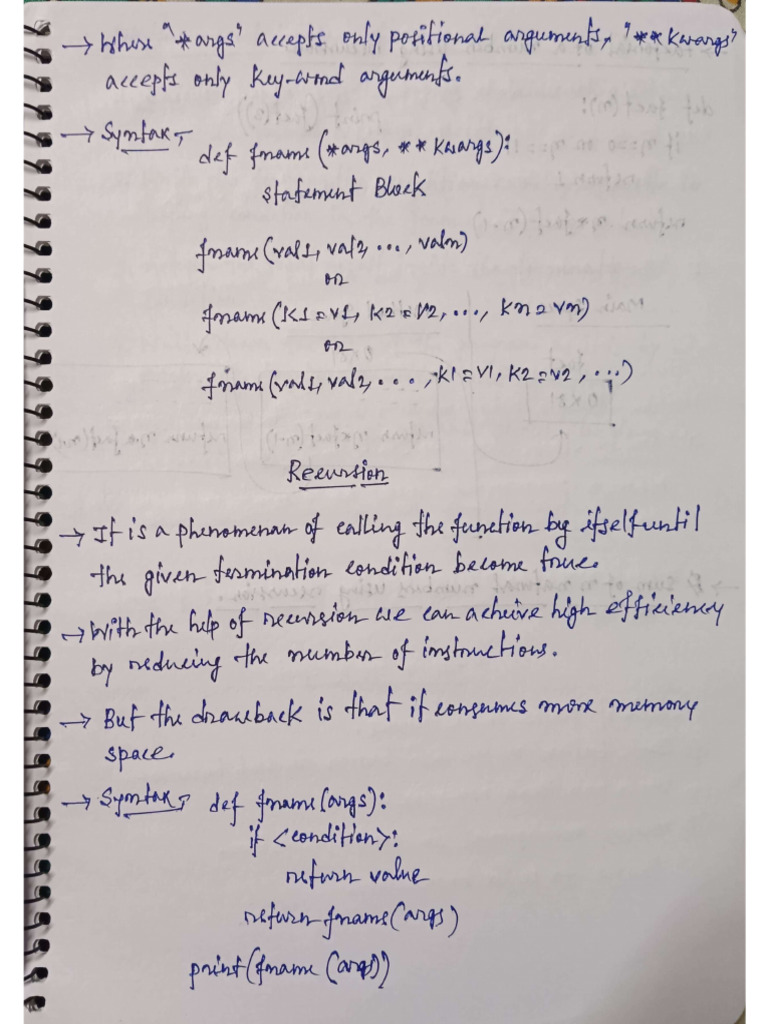 → Where "*args" accepts only positional arguments, "**kwargs"
accepts only key-word arguments.
→ Syntax,
def fname (*args, **kwargs):
statement Block
fname(val1, val2, ..., valn)
or
fname(K1=V1, K2=V2, ..., Kn=Vn)
or
fname(val1, val2, ..., K1=V1, K2=V2, ...)
Recursion
→ It is a phenomenan of calling the function by itself until
the given termination condition become true.
→ With the help of recursion we can acheive high efficiency
by reducing the number of instructions.
→ But the drawback is that it consumes more memory
space.
→ Syntax, def fname(args):
if <condition>:
return value
return fname(args)
print(fname (args))